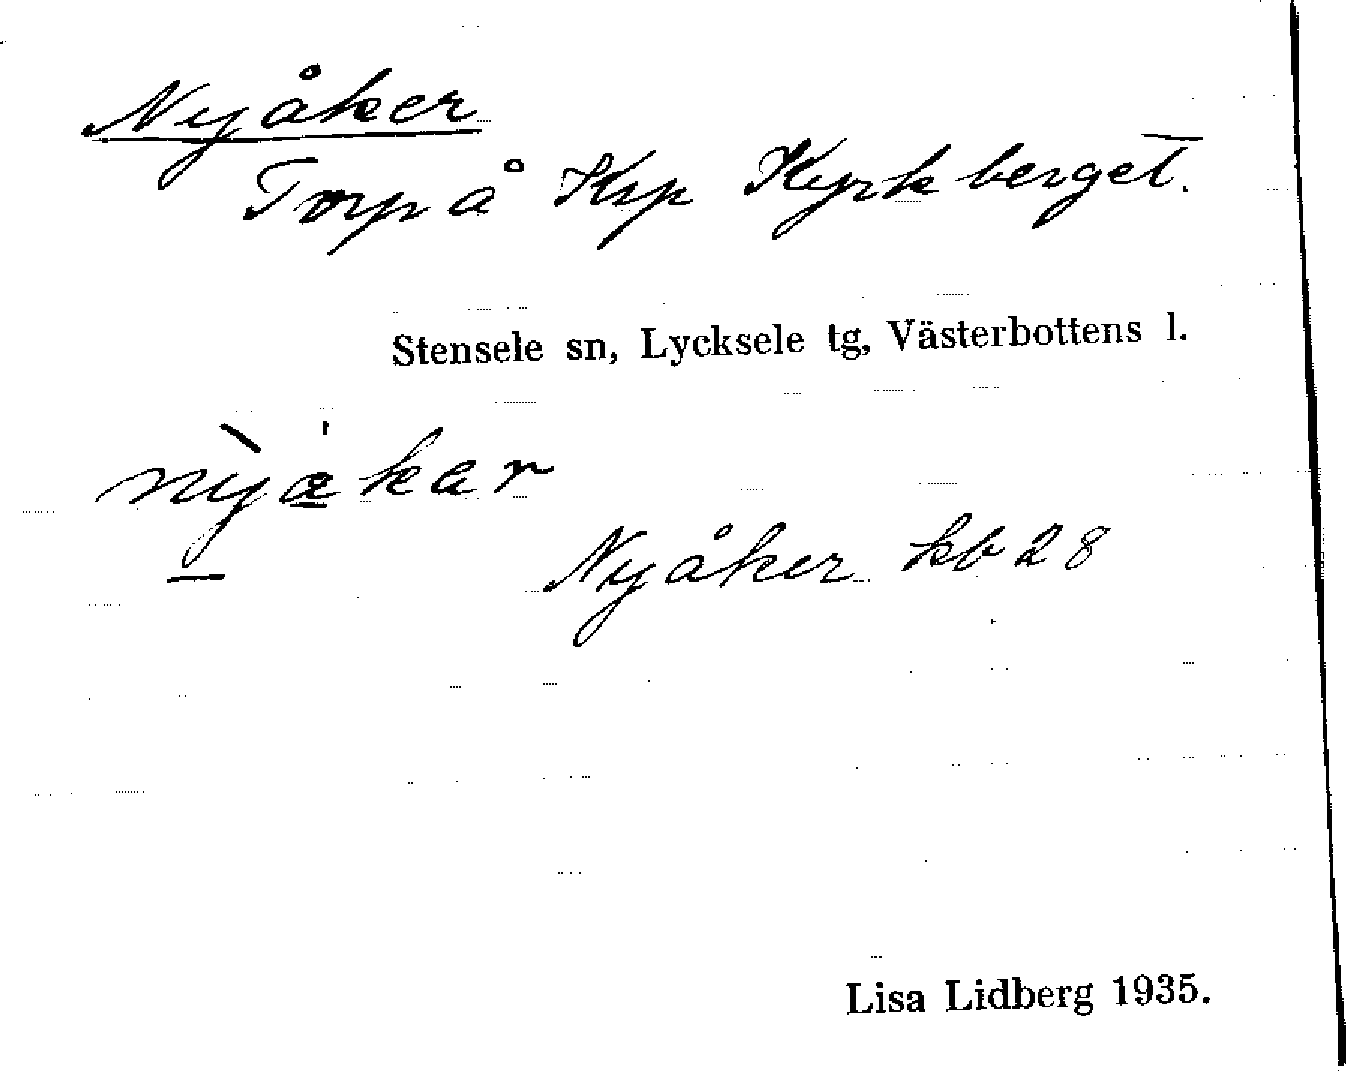 Nyåker
Torp å Krp Kyrkberget.
Stensele sn, Lycksele tg, Västerbottens l.
nỳa̲'kar
Nyåker kb 28
Lisa Lidberg 1935.